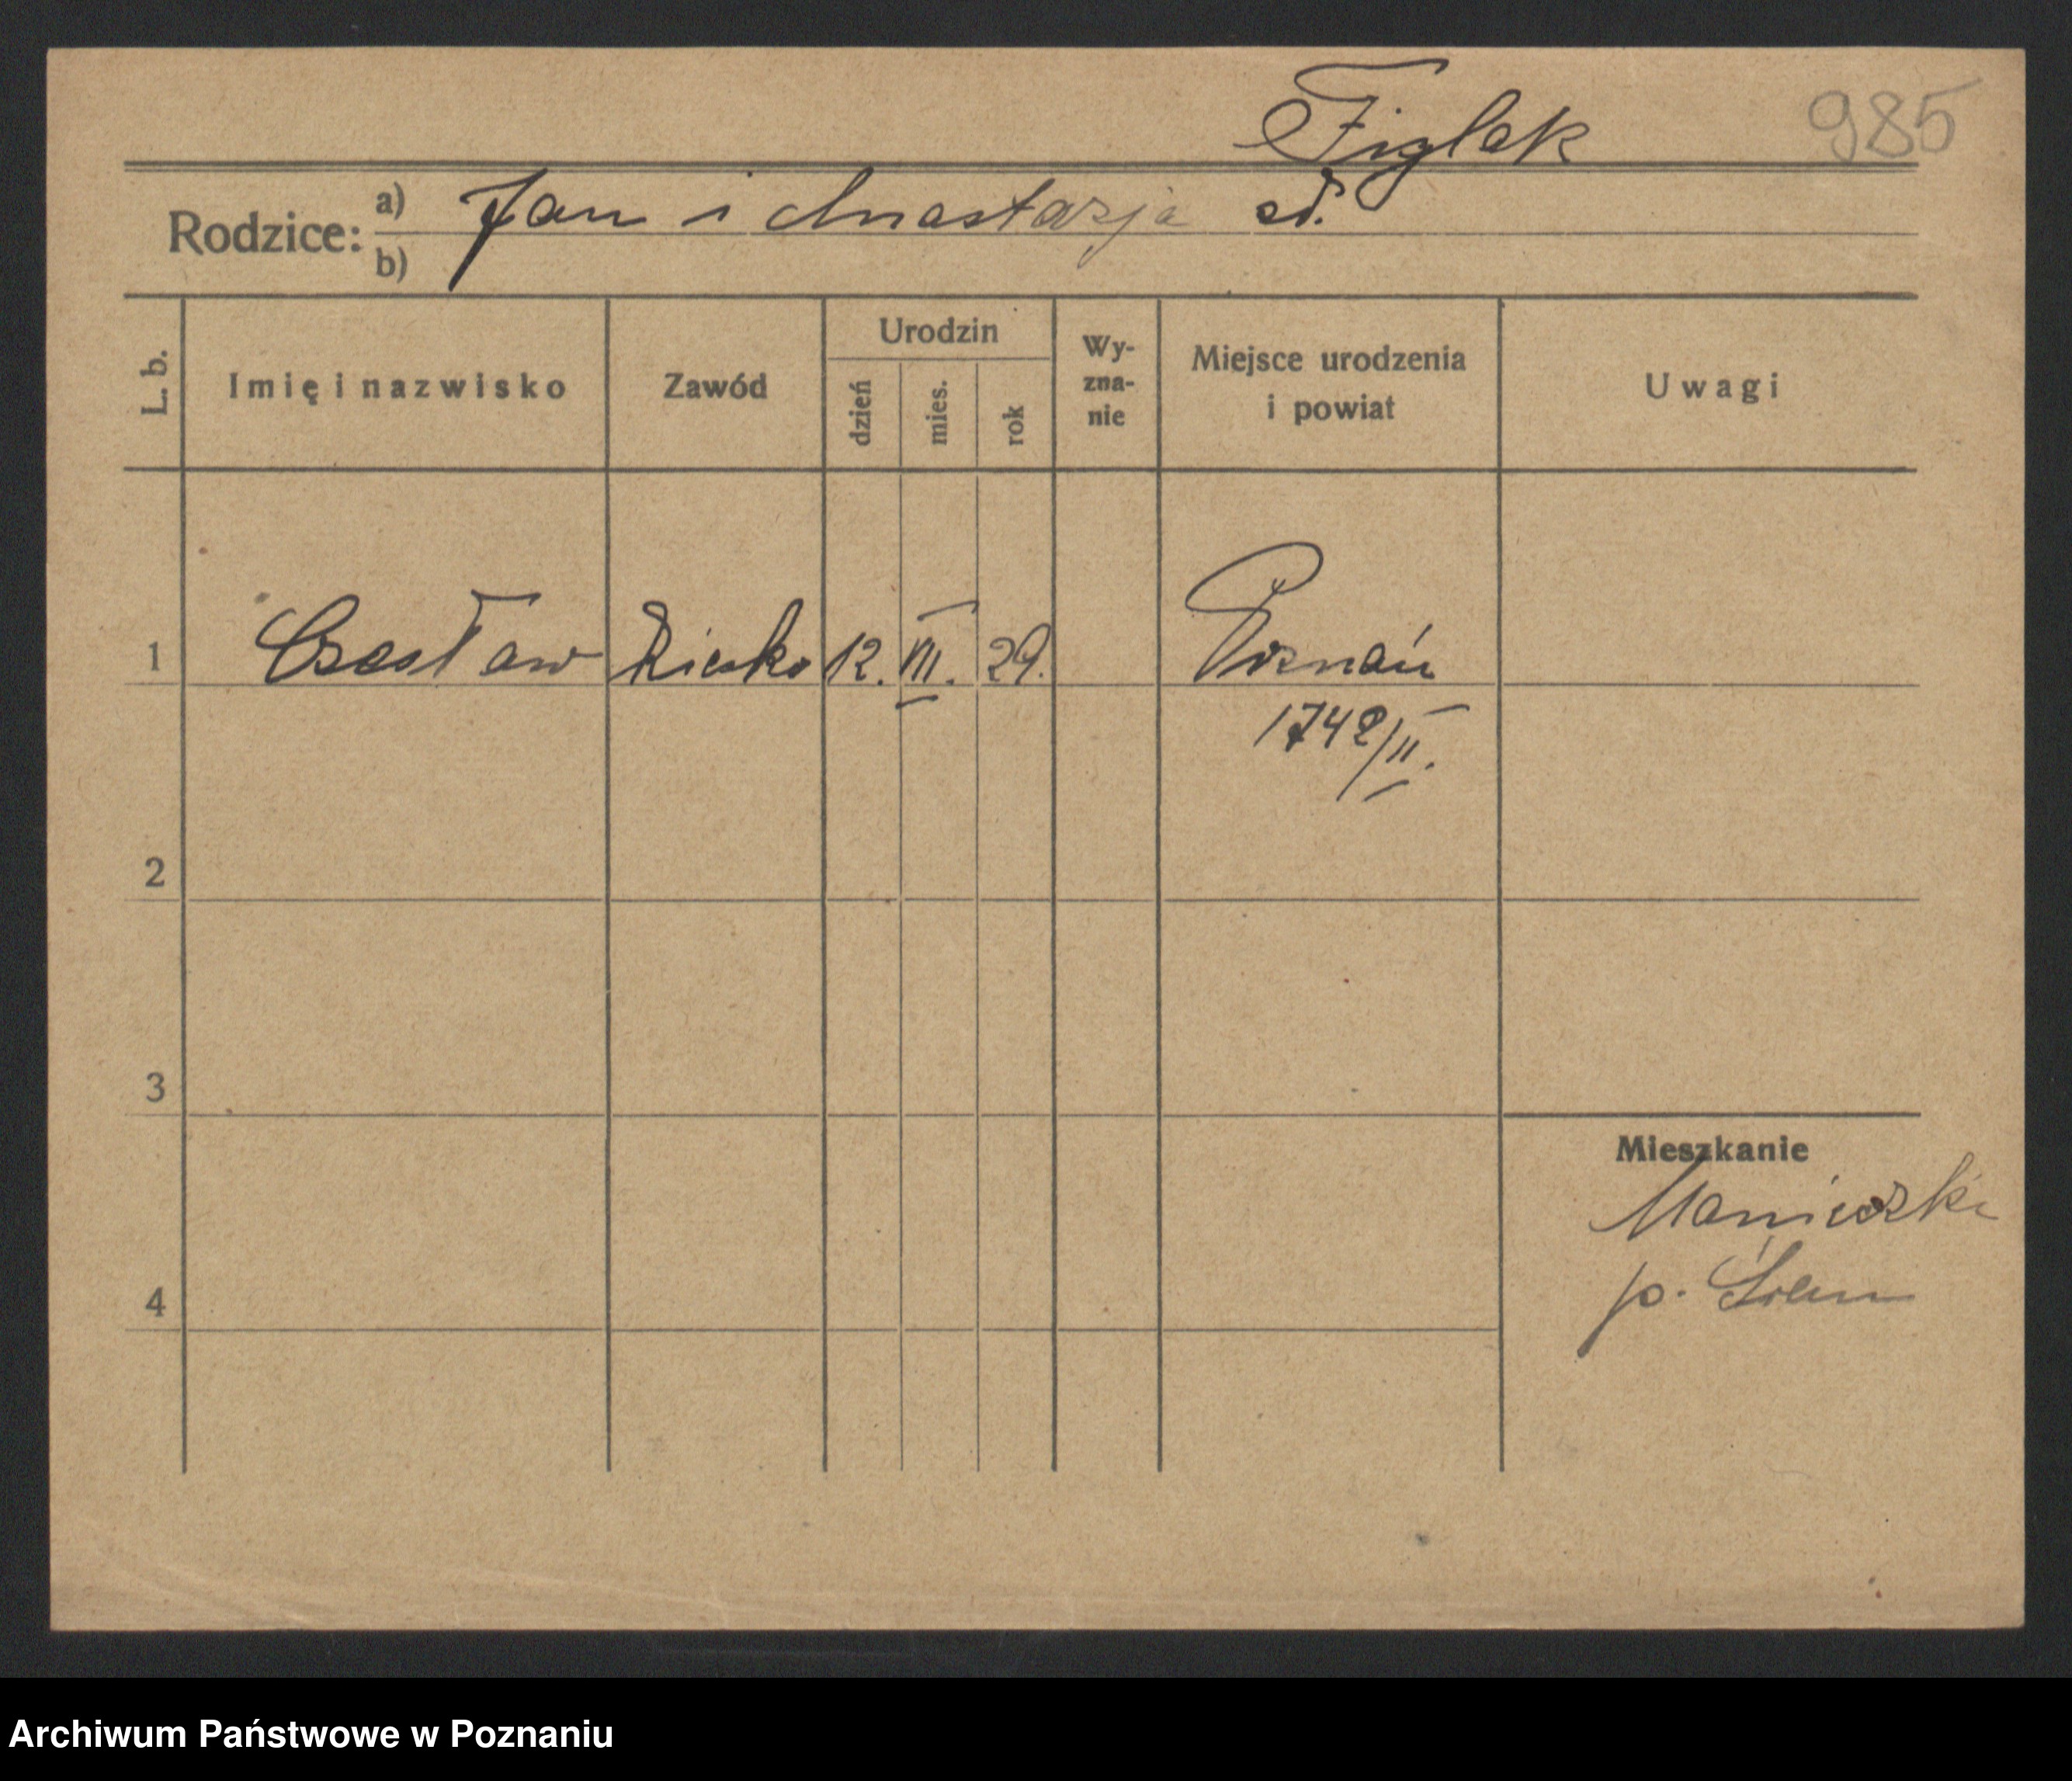 Figlak 985
Rodzice: a) Jan i Anastazja
b)
L. b. Imię i nazwisko Zawód Urodzin dzień mies. rok Wy-zna-nie Miejsce urodzenia i powiat Uwagi
1 Czesław 12. III. 29. Poznań
1742/II.
2
3
Mieszkanie
Manieczki
p. Śrem
4
Archiwum Państwowe w Poznaniu